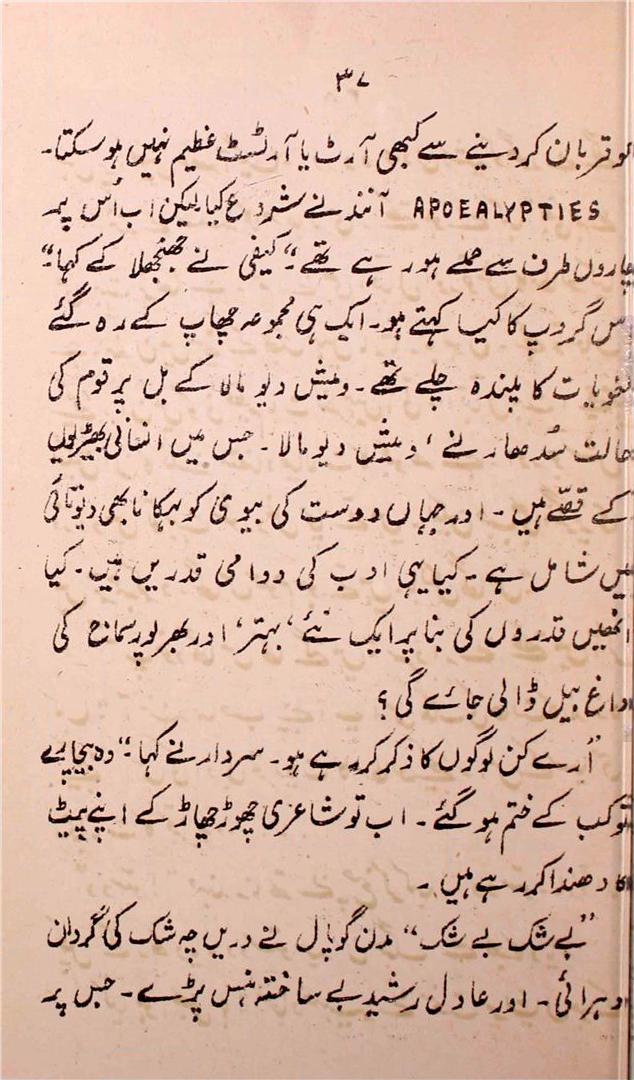 ۳۷
کو قربان کر دینے سے کبھی آرٹ یا آرٹسٹ عظیم نہیں ہو سکتا۔
APOEALYPTIES آنند نے شروع کیا لیکن اب اُس پر
چاروں طرف سے حملے ہو رہے تھے۔ ”کیفی نے جھنجھلا کے کہا۔“
اس گروپ کا کیا کہتے ہو۔ ایک ہی مجموعہ چھاپ کے رہ گئے
لغویات کا پلندہ چلے تھے۔ ومیش دیو مالا کے بل پر قوم کی
حالت سُدھارنے ‘ ومیش دیو مالا۔ جس میں انسانی بھیڑیوں
کے قصّے ہیں۔ اور جہاں دوست کی بیوی کو بہکانا بھی دیوتائی
میں شامل ہے۔ کیا یہی ادب کی دوامی قدریں ہیں۔ کیا
انھیں قدروں کی بنا پر ایک نئے‘ بہتر‘ اور بھرپور سماج کی
داغ بیل ڈالی جائے گی؟
”اُرے کن لوگوں کا ذکر کر رہے ہو۔ سردار نے کہا۔ ”وہ بیچارے
تو کب کے ختم ہو گئے۔ اب تو شاعری چھوڑ چھاڑ کے اپنے پیٹ
کا دھندا کر رہے ہیں۔
”بے شک بے شک“ مدن گوپال نے دریں چہ شک کی گردان
دہرائی۔ اور عادل رشید بے ساختہ ہنس پڑے۔ جس پر